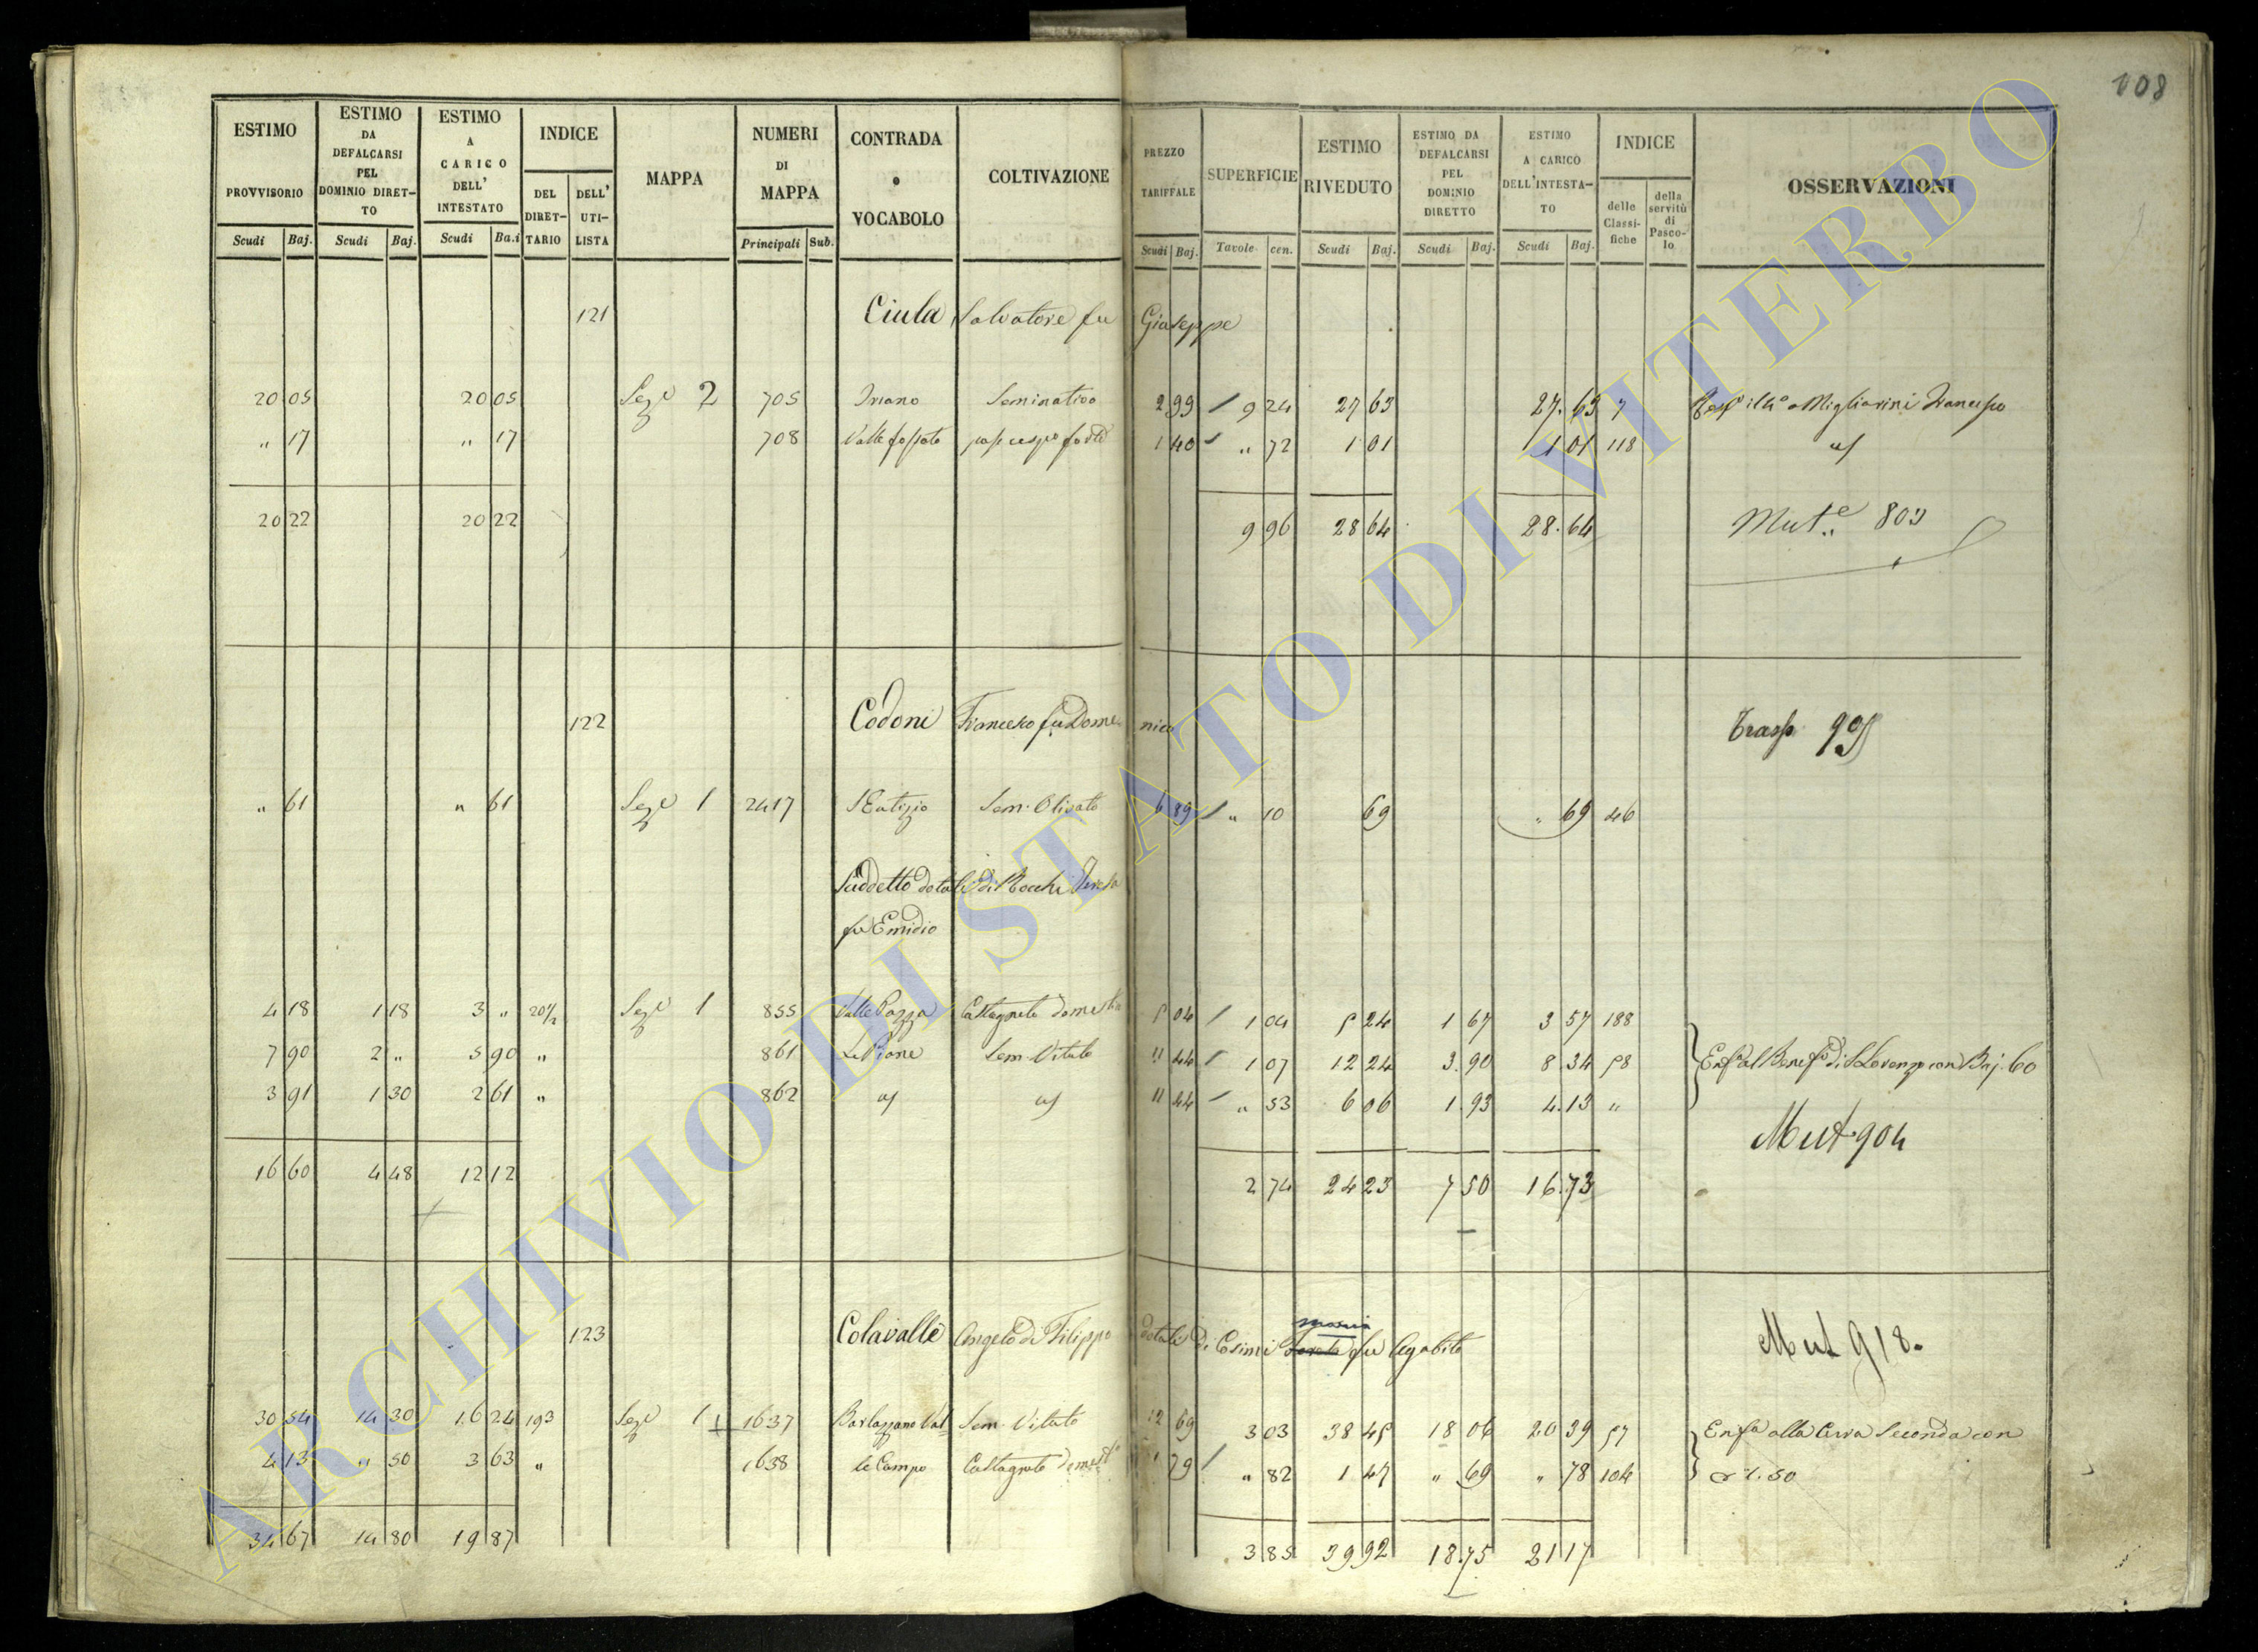 108
ESTIMO PROVVISORIO | ESTIMO DA DEFALCARSI PEL DOMINIO DIRETTO | ESTIMO A CARICO DELL' INTESTATO | INDICE DEL DIRETTARIO | DELL' UTILISTA | MAPPA | NUMERI DI MAPPA | CONTRADA o VOCABOLO | COLTIVAZIONE | PREZZO TARIFFALE | SUPERFICIE | ESTIMO RIVEDUTO | ESTIMO DA DEFALCARSI PEL DOMINIO DIRETTO | ESTIMO A CARICO DELL'INTESTATO | INDICE delle Classifiche | della servitù di Pascolo | OSSERVAZIONI
Scudi Baj. | Scudi Baj. | Scudi Ba.i | Principali Sub. | Scudi Baj. | Tavole cen. | Scudi Baj. | Scudi Baj. | Scudi Baj.
121 Ciula Salvatore fu Giuseppe
20 05 | 20 05 | Seze 2 | 705 | Seminativo | 2 99 | 9 24 | 27 63 | 27. 63 | 7 | Migliorini Francesco
" 17 | " 17 | 708 | Valle fossato | 1 40 | " 72 | 1 01 | 1 01 | 118
20 22 | 20 22 | 9 96 | 28 64 | 28. 64 | Mut.e 803
122 Codoni Francesco fu Domenico | Trasp 995
" 61 | " 61 | Seze 1 | 2417 | S Eutizio | Sem. Olivato | 6 89 | " 10 | 69 | " 69 | 46
Suddetto dotali di Rocchi Teresa
fu Emidio
4 18 | 1 18 | 3 " | 201/2 | Seze 1 | 855 | Valle Pazza | Castagneto domestico | 5 04 | 1 04 | 5 24 | 1 67 | 3 57 | 188
7 90 | 2 " | 5 90 | " | 861 | Le Piane | Sem. Vitato | 11 44 | 1 07 | 12 24 | 3. 90 | 8 34 | 58 | Enfa al Benefo di S Lorenzo con Baj. 60
3 91 | 1 30 | 2 61 | " | 862 | 11 44 | " 53 | 6 06 | 1. 93 | 4. 13 | "
Mut 904
16 60 | 4 48 | 12 12 | 2 74 | 24 23 | 7 50 | 16. 73
maria
123 Colavalle Angelo di Filippo dotali di Cosimi fu Agabito | Mut 918.
30 54 | 14 30 | 16 24 | 193 | Seze 1 | 1637 | Barlozzano Val= | Sem. Vitato | 12 69 | 3 03 | 38 45 | 18 06 | 20 39 | 57 | Enfa alla Cura Seconda con
4 13 | " 50 | 3 63 | " | 1638 | le Campo | Castagneto domesto | 1 79 | " 82 | 1 47 | " 69 | " 78 | 104 | 1. 50
34 67 | 14 80 | 19 87 | 3 85 | 39 92 | 18. 75 | 21 17
ARCHIVIO DI STATO DI VITERBO